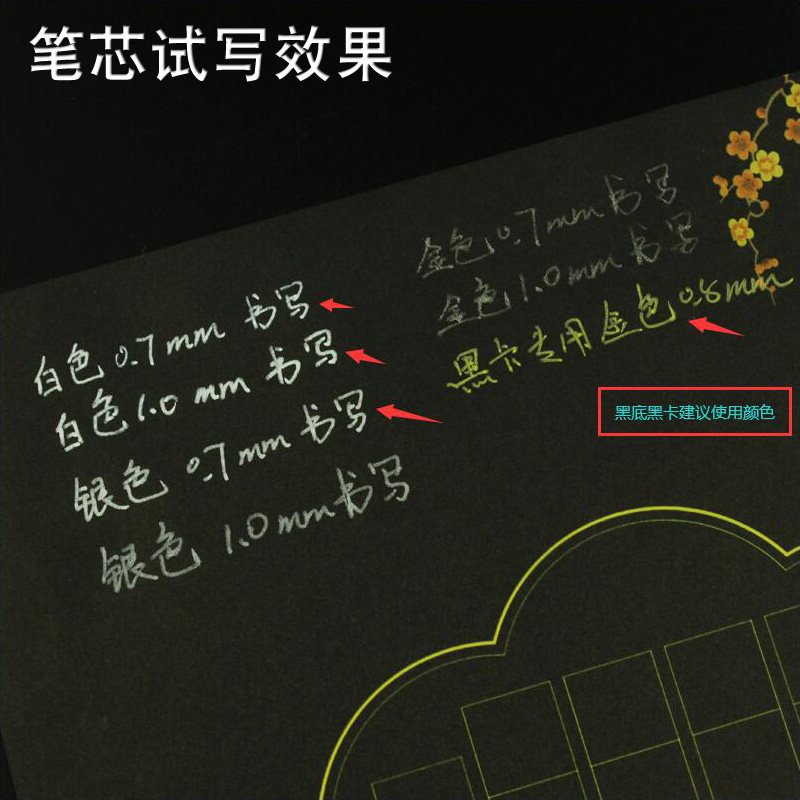 笔芯试写效果
白色0.7mm 书写
白色1.0 mm 书写
银色 0.7mm 书写
银色 1.0mm书写
金色0.7mm书写
金色1.0mm书写
黑卡专用金色0.8mm
黑底黑卡建议使用颜色